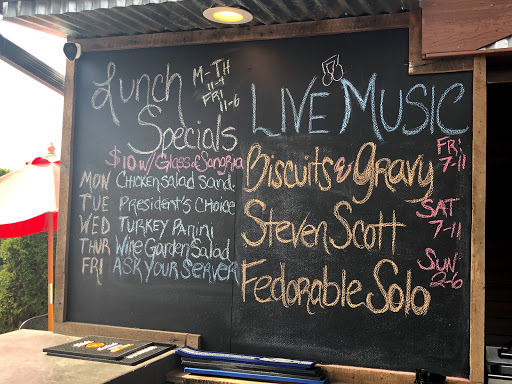 Lunch
M-TH
11-4
FRI
11-6
Specials
$10 w/ Glass of Sangria
MON Chicken Salad Sand.
TUE President's Choice
WED Turkey Panini
THUR Wine Garden Salad
FRI Ask Your Server
Live Music
Biscuits & Gravy
FRI
7-11
Steven Scott
SAT
7-11
Fedorable Solo
SUN
2-6